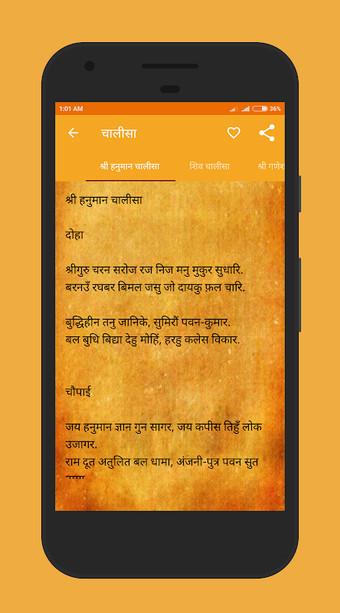 1:01 AM 36%
चालीसा
श्री हनुमान चालीसा शिव चालीसा श्री गणेश
श्री हनुमान चालीसा
दोहा
श्रीगुरु चरन सरोज रज निज मनु मुकुर सुधारि.
बरनउँ रघबर बिमल जसु जो दायकु फ़ल चारि.
बुद्धिहीन तनु जानिके, सुमिरौं पवन-कुमार.
बल बुधि बिद्या देहु मोहिं, हरहु कलेस विकार.
चौपाई
जय हनुमान ज्ञान गुन सागर, जय कपीस तिहुँ लोक
उजागर.
राम दूत अतुलित बल धामा, अंजनी-पुत्र पवन सुत